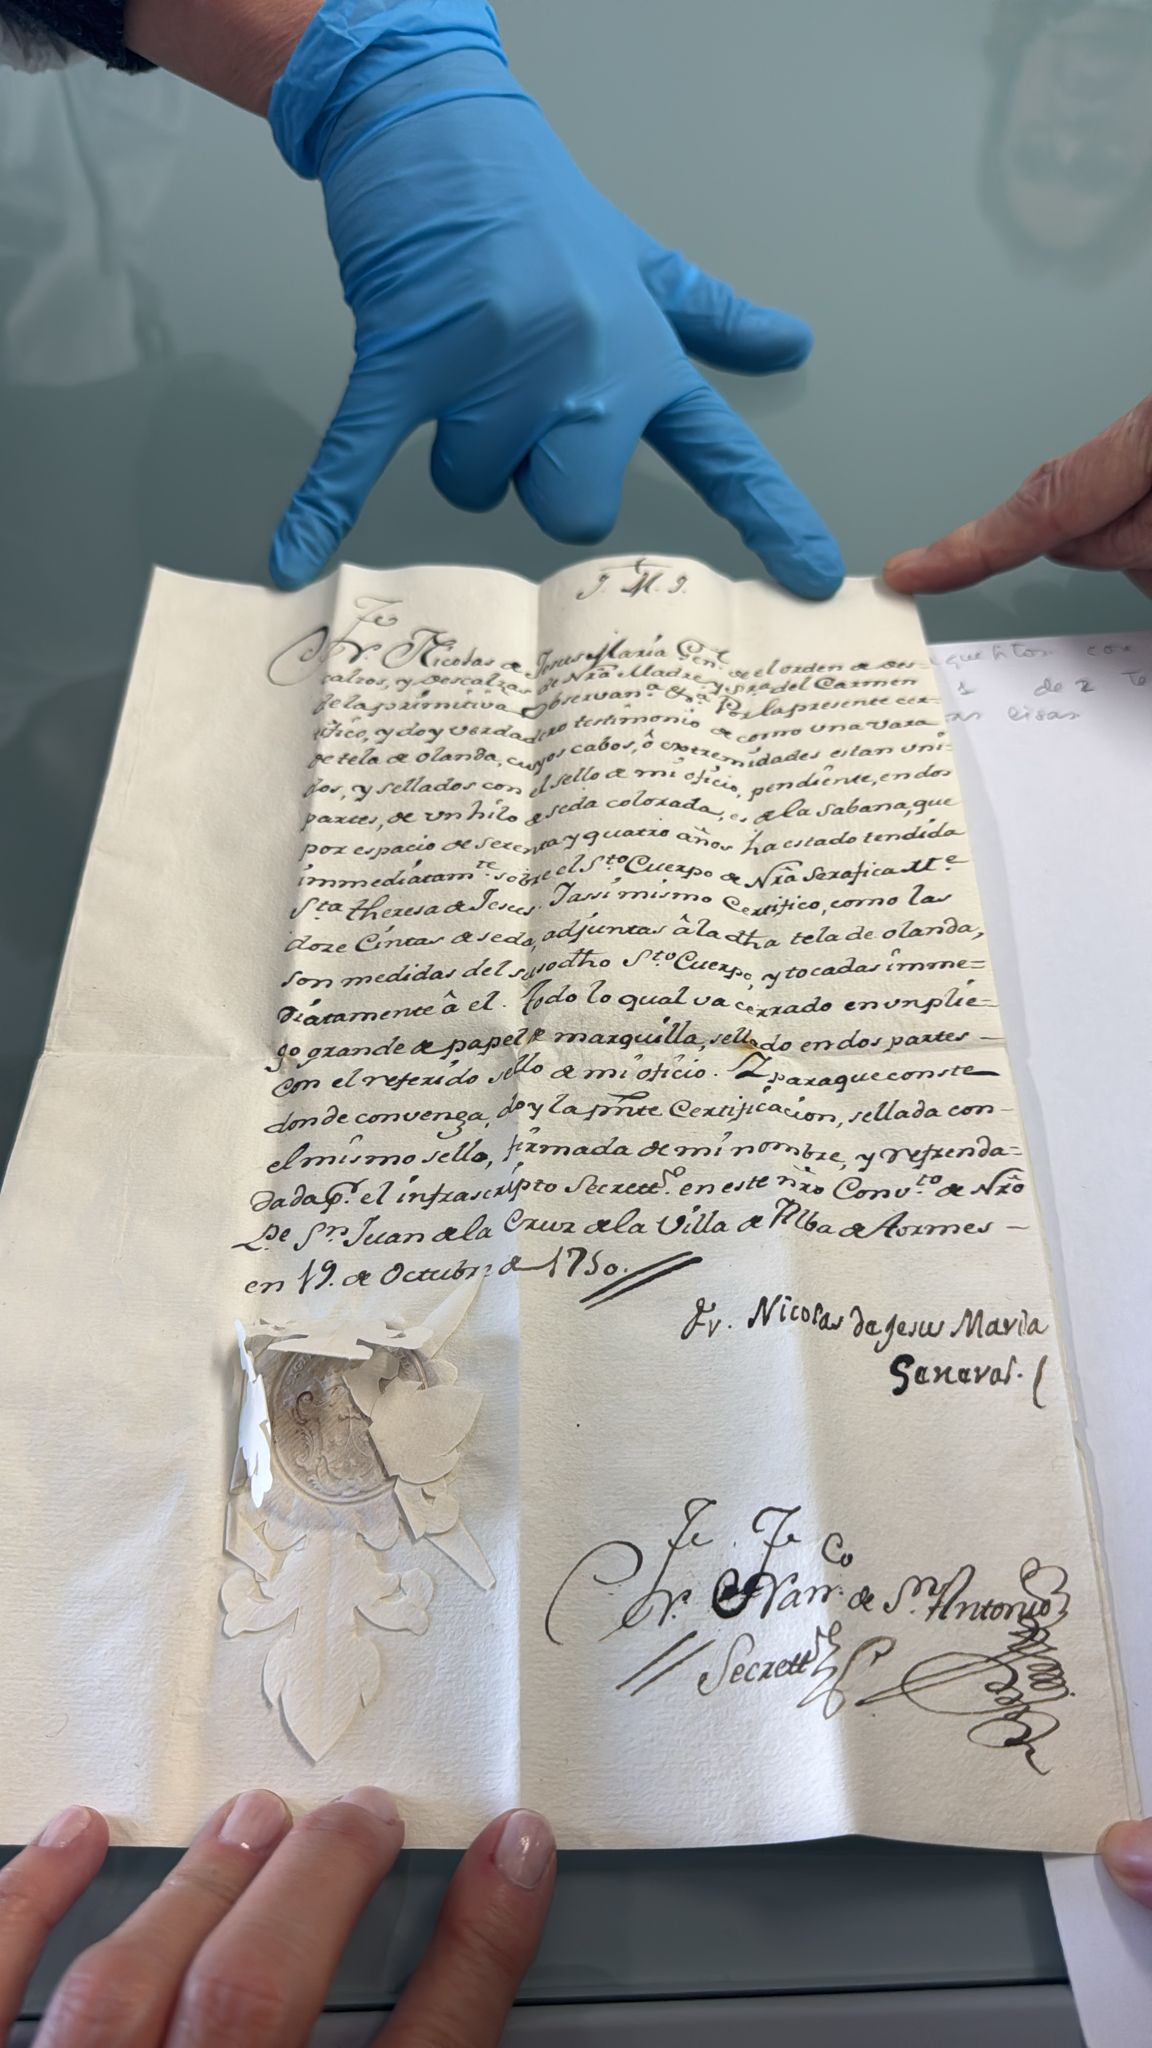 J. M. J.
Fr. Nicolas de Jesus Maria Gen.l de el orden de Des-
calzos, y Descalzas de Nrâ Madre, y Srâ del Carmen
de la primitiva observan.a &.a Por la presente cer-
tifico, y doy verdadero testimonio de como una vara
de tela de olanda, cuyos cabos, ô extremidades estan uni-
dos, y sellados con el sello de mi oficio, pendiente, en dos
partes, de un hilo de seda colorada, es de la Sabana, que
por espacio de setenta y quatro años ha estado tendida
immediatam.te sobre el S.to Cuerpo de Nrâ Serafica M.e
S.ta Theresa de Jesus. Iassimismo Certifico, como las
doze Cintas de seda, adjuntas â la dtha tela de olanda,
son medidas del susodtho S.to Cuerpo, y tocadas imme=
diatamente â el. Todo lo qual va cerrado en un plie=
go grande de papel de marquilla, sellado en dos partes
con el referido sello de mi oficio. Y para que conste
donde convenga, doy la pnte Certificacion, sellada con
el mismo sello, firmada de mi nombre, y refrenda=
dada p.r el infrascripto Secrett.o en este nrô Conv.to de Nrô
P.e S.n Juan de la Cruz de la Villa de Alba de Tormes
en 19. de Octubre de 1750.
Fr. Nicolas de Jesus Maria
General.
Fr. Fran.co de S.n Antonio
Secrett.o
que hitos con
1 de 2 Te